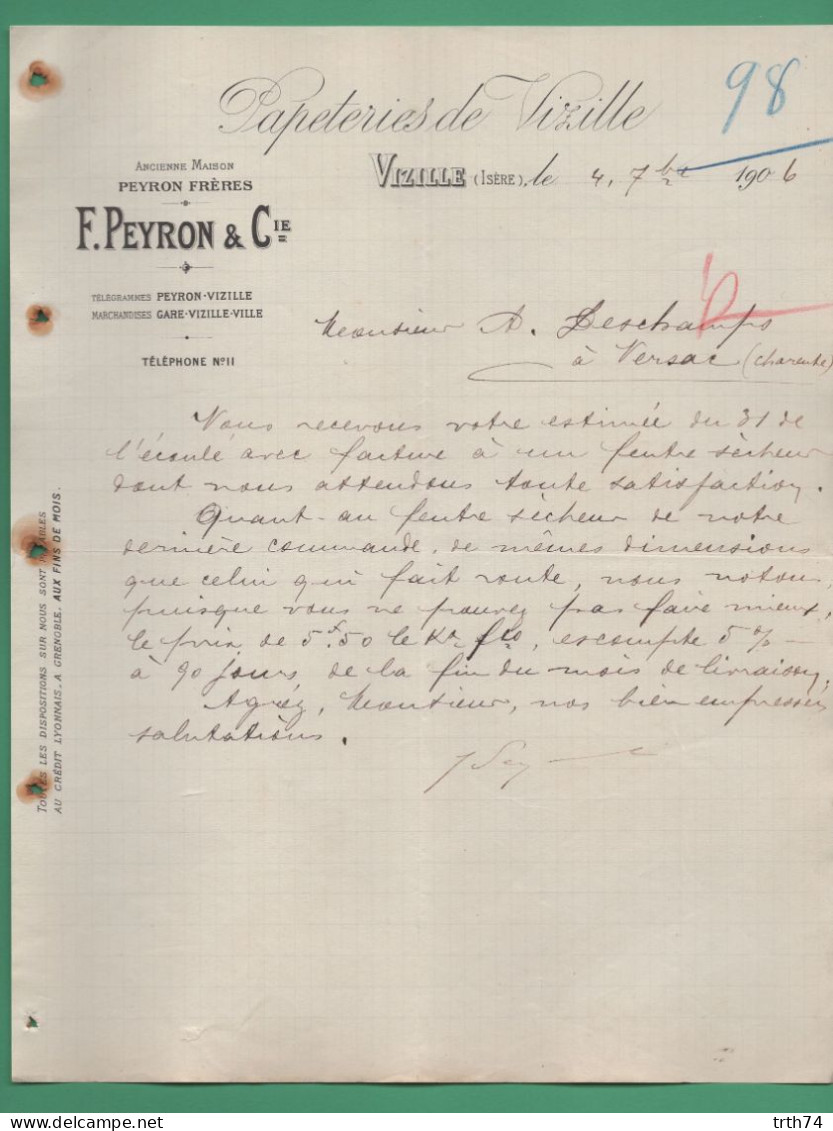 98
Papeteries de Vizille
ANCIENNE MAISON
PEYRON FRÈRES
F. PEYRON & CIE
TÉLÉGRAMMES PEYRON-VIZILLE
MARCHANDISES GARE-VIZILLE-VILLE
TÉLÉPHONE N° 11
VIZILLE (ISÈRE), le 4, 7bre 1906
Monsieur A. Deschamps
à Versac (Charente)
Nous recevons votre estimée du 31 de
l'écoulé avec facture à un feutre sècheur
dont nous attendons toute satisfaction.
Quant au feutre sècheur de notre
dernière commande, de mêmes dimensions
que celui qui fait route, nous notons,
puisque vous ne pouvez pas faire mieux,
le prix de 5f.50 le Ko fco, escompte 5 % —
à 90 jours de la fin du mois de livraison.
Agréez, Monsieur, nos bien empressées
salutations.
TOUTES LES DISPOSITIONS SUR NOUS SONT PAYABLES
AU CRÉDIT LYONNAIS, A GRENOBLE, AUX FINS DE MOIS.
trth74